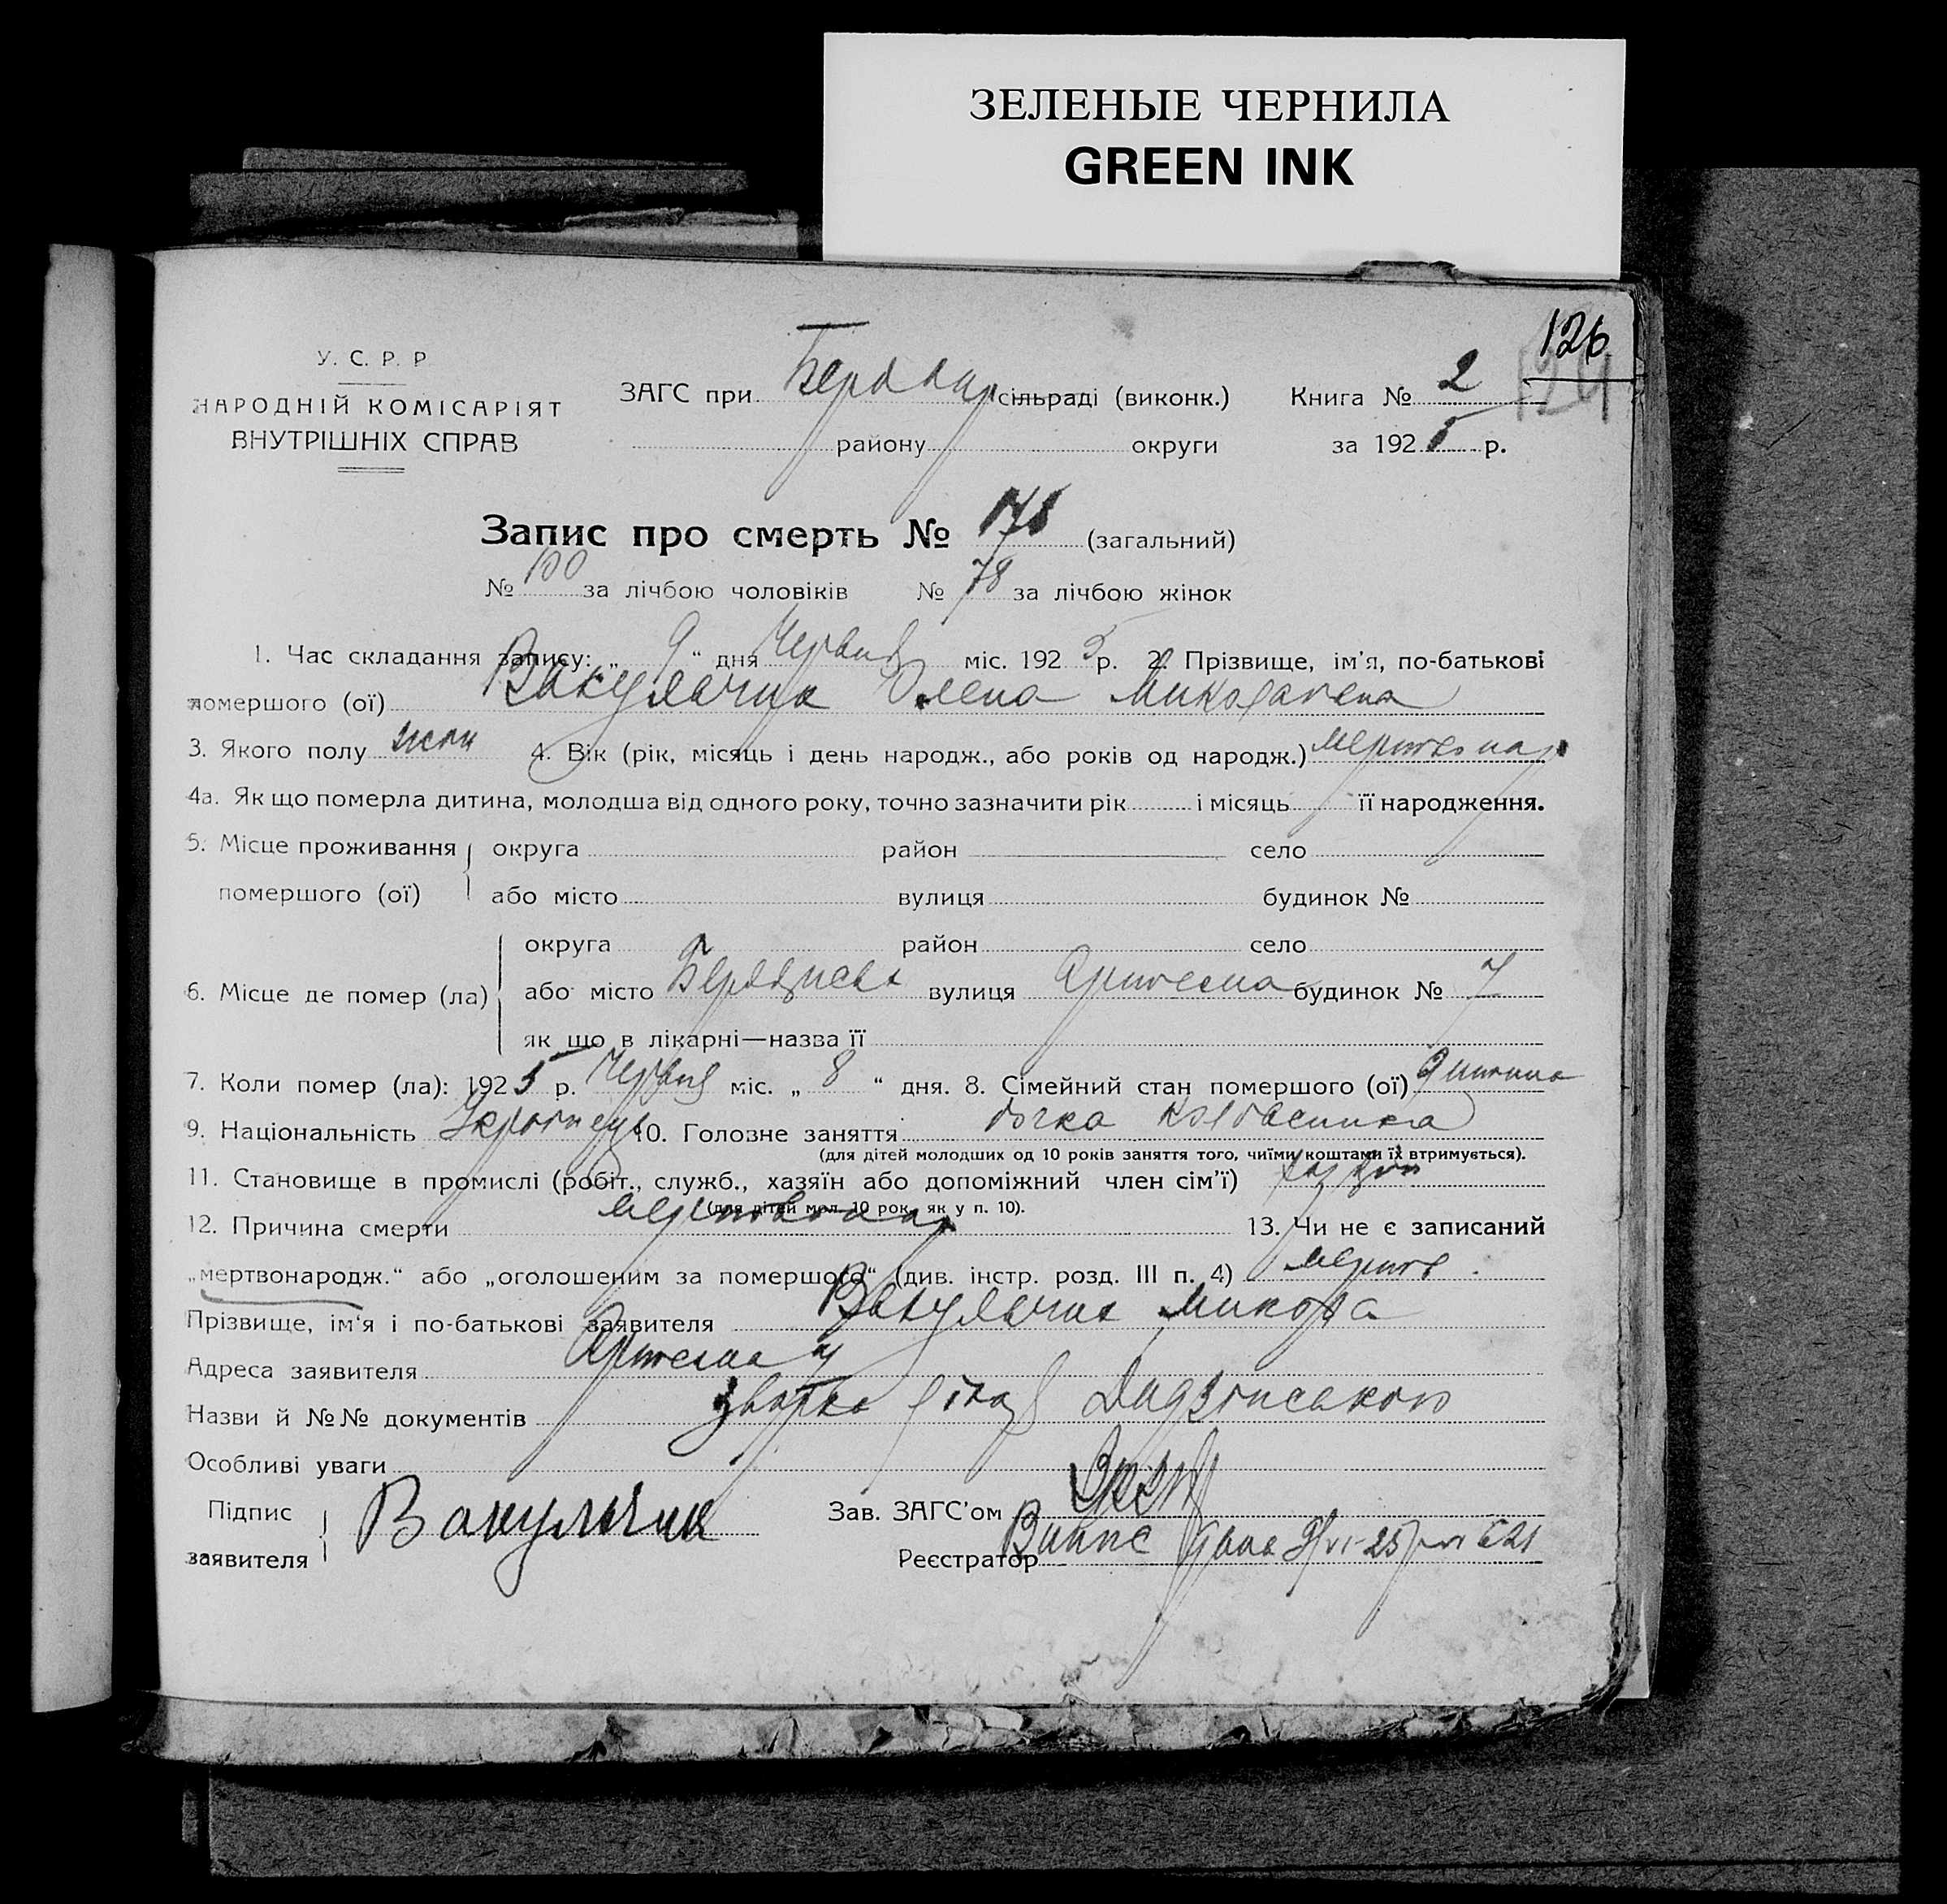 ЗЕЛЕНЫЕ ЧЕРНИЛА
GREEN INK
126
У. С. Р. Р
НАРОДНІЙ КОМІСАРІЯТ
ВНУТРІШНІХ СПРАВ
ЗАГС при сільраді (виконк.) Книга № 2
району округи за 1925 р.
Запис про смерть № 178 (загальний)
№ 100 за лічбою чоловіків № 78 за лічбою жінок
1. Час складання запису: „ 9 “ дня Червня міс. 1925 р. 2. Прізвище, ім'я, по-батькові
помершого (ої) Вакульчик Олена Миколаєвна
3. Якого полу жін 4. Вік (рік, місяць і день народж., або років од народж.) мертвонар
4а. Як що померла дитина, молодша від одного року, точно зазначити рік і місяць її народження.
5. Місце проживання округа район село
помершого (ої) або місто вулиця будинок №
округа район село
6. Місце де помер (ла) або місто Бердичев вулиця будинок № 7
як що в лікарні—назва її
7. Коли помер (ла): 1925 р. Червня міс. „ 8 “ дня. 8. Сімейний стан помершого (ої) дитина
9. Національність 10. Головне заняття дочка колбасника
(для дітей молодших од 10 років заняття того, чиїми коштами їх втримується).
11. Становище в промислі (робіт., служб., хазяїн або допоміжний член сім'ї)
(для дітей мол. 10 рок. як у п. 10).
12. Причина смерти мертвонар 13. Чи не є записаний
„мертвонародж.“ або „оголошеним за помершого“ (див. інстр. розд. III п. 4) мертв.
Прізвище, ім'я і по-батькові заявителя Вакульчик Микола
Адреса заявителя 7
Назви й №№ документів
Особливі уваги
Підпис Вакульчик Зав. ЗАГС'ом
заявителя Реєстратор